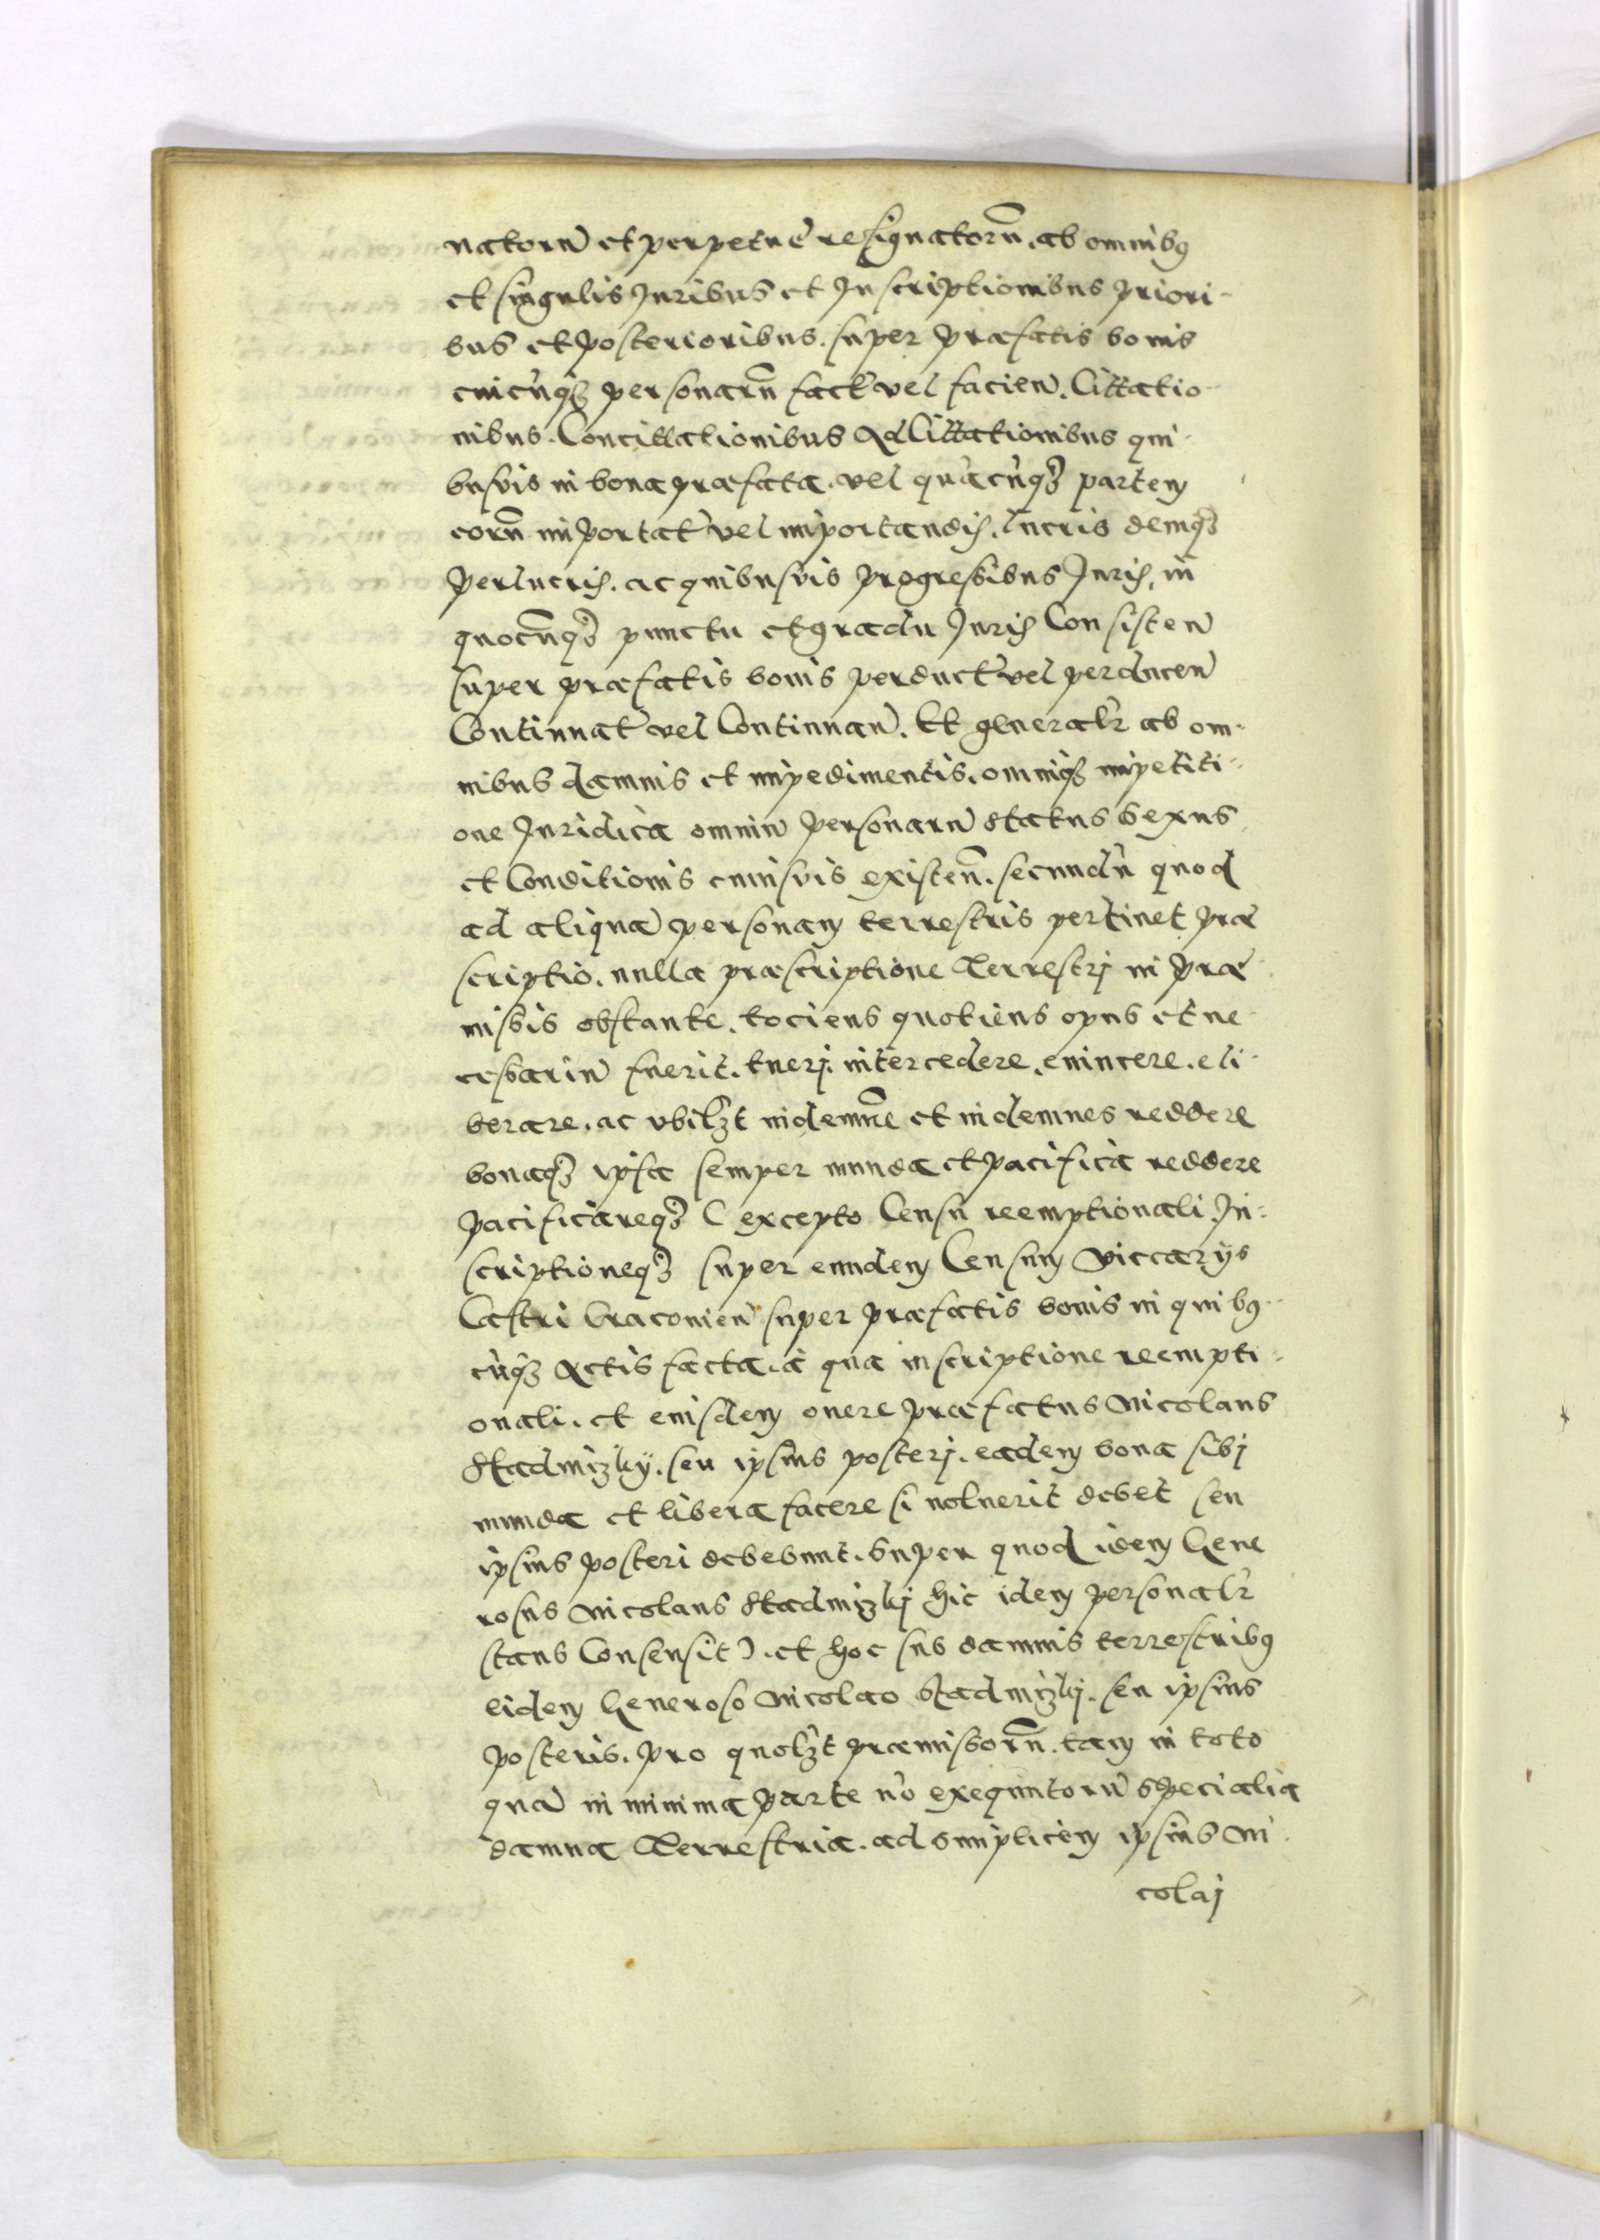 natorū et perpetuè resignatorū, ab omnibꝫ
et singulis Juribus et Inscriptionibus priori-
bus et posterioribus. super præfatis bonis
cuicūqꝫ personarū fact̃ vel facień. Cittatio-
nibus. Concittationibus Adcittationibus qui-
busvis in bona præfata. vel quācūqꝫ partem
eorū importat̃ vel importandis. lucris deniqꝫ
perlucris. ac quibusvis progressibus Juris, in
quocūqꝫ punctu et gradu Juris Consisteñ
super præfatis bonis perduct̃ vel perduceñ
Continuat̃ vel Continuañ. Et generalr̃ ab om-
nibus damnis et impedimentis. omniqꝫ impetiti-
one Juridica omniū personarū status sexus
et Conditionis cuiusvis existeñ. secundū quod
ad aliquā personam terrestris pertinet præ
scriptio. nulla præscriptione Terrestrj in præ
missis obstante. tociens quotiens opus et ne-
cessariū fuerit. tuerj. intercedere. euincere. eli-
berare. ac vbilꝫt indemnē et indemnes reddere
bonaqꝫ ipsa semper munda et pacifica reddere
pacificareqꝫ ( excepto Censu reemptionali In-
scriptioneqꝫ super eundem Censum viccarijs
Castri Cracovień super præfatis bonis in quibꝫ-
cūqꝫ Actis facta. à qua inscriptione reempti-
onali. et eiusdem onere præfatus Nicolaus
Stadnizkÿ. seu ipsius posterj. eadem bona sibj
munda et libera facere si voluerit debet seu
ipsius posteri debebunt. Super quod idem Gene
rosus Nicolaus Stadnizkj hic idem personalr̃
stans Consensit ). et hoc sub damnis terrestribꝫ
eidem Generoso Nicolao Stadnizkj. seu ipsius
posteris. pro quolꝫt præmissorū. tam in toto
quā in minima parte nō exequutorū specialia
damna Terrestria. ad simplicem ipsius Ni-
colaj